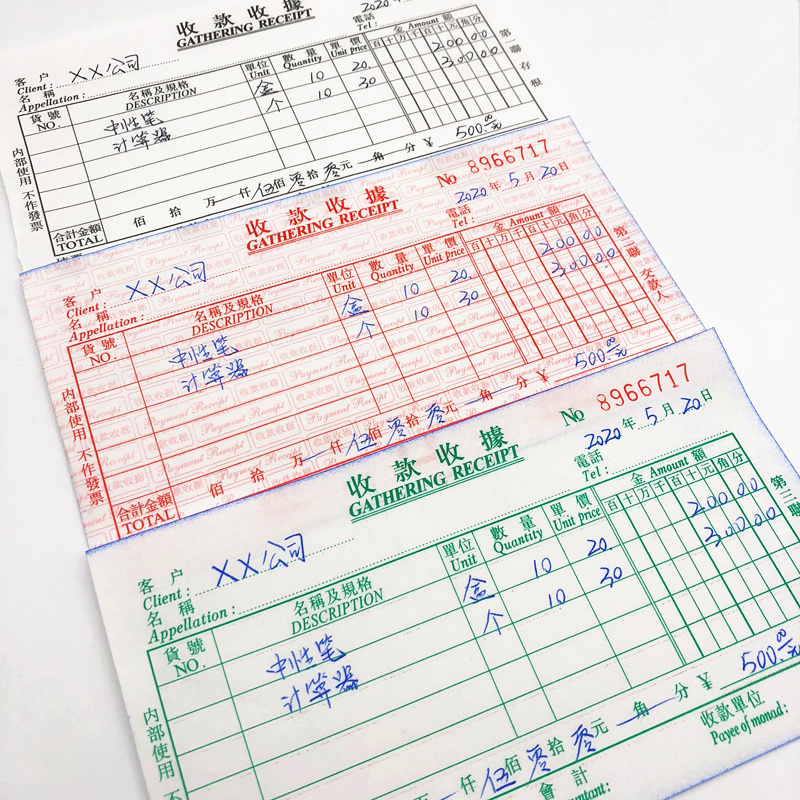 收款收據
GATHERING RECEIPT
2020
電話
Tel :
客 户
Client : XX公司
名 稱
Appellation :
貨號 NO. 名稱及規格 DESCRIPTION 單位 Unit 數量 Quantity 單價 Unit price 金 Amount 額
百十万千百十元角分
中性笔 盒 10 20. 200.00
计算器 个 10 30 300.00
第一聯 存根
内部使用 不作發票
合計金額 TOTAL 佰 拾 万 仟 伍佰 零拾 零元 角 分 ¥ 500.00元
收款收據
GATHERING RECEIPT
No 8966717
2020年 5月 20日
電話
Tel :
客 户
Client : XX公司
名 稱
Appellation :
貨號 NO. 名稱及規格 DESCRIPTION 單位 Unit 數量 Quantity 單價 Unit price 金 Amount 額
百十万千百十元角分
中性笔 盒 10 20. 200.00
计算器 个 10 30 300.00
交款人
内部使用 不作發票
合計金額 TOTAL 佰 拾 万 仟 伍佰 零拾 零元 角 分 ¥ 500.00元
收款收據
GATHERING RECEIPT
No 8966717
2020年 5月 20日
電話
Tel :
客 户
Client : XX公司
名 稱
Appellation :
貨號 NO. 名稱及規格 DESCRIPTION 單位 Unit 數量 Quantity 單價 Unit price 金 Amount 額
百十万千百十元角分
中性笔 盒 10 20. 200.00
计算器 个 10 30 300.00
第三聯
内部使用 不
仟 伍佰 零拾 零元 角 分 ¥ 500.00元
會計
收款單位
Payee of monad :